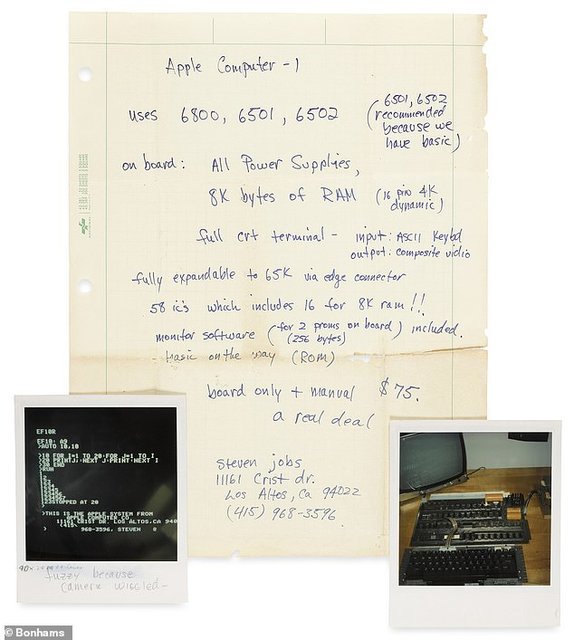 Apple Computer - 1
uses 6800, 6501, 6502
(6501, 6502
recommended
because we
have basic)
on board: All Power Supplies,
8K bytes of RAM (16 pin 4K
dynamic)
full crt terminal - input: ASCII Keybd
output: composite vidio
fully expandable to 65K via edge connector
58 ic's which includes 16 for 8K ram!!
monitor software (for 2 proms on board) included.
(256 bytes)
basic on the way (ROM)
board only + manual $75.
a real deal
steven jobs
11161 Crist dr.
Los Altos, Ca 94022
(415) 968-3596
EF10R
EF10: A9
>AUTO 10,10
>10 FOR I=1 TO 20:FOR J=1 TO I
>20 PRINTJ:NEXT J:PRINT:NEXT I
>30 END
>RUN
STOPPED AT 20
>THIS IS THE APPLE SYSTEM FROM
APPLE COMPUTER CO.
11161 CRIST DR. LOS ALTOS,CA 940
(415)
968-3596, STEVEN
fuzzy because
camera wiggled-
© Bonhams